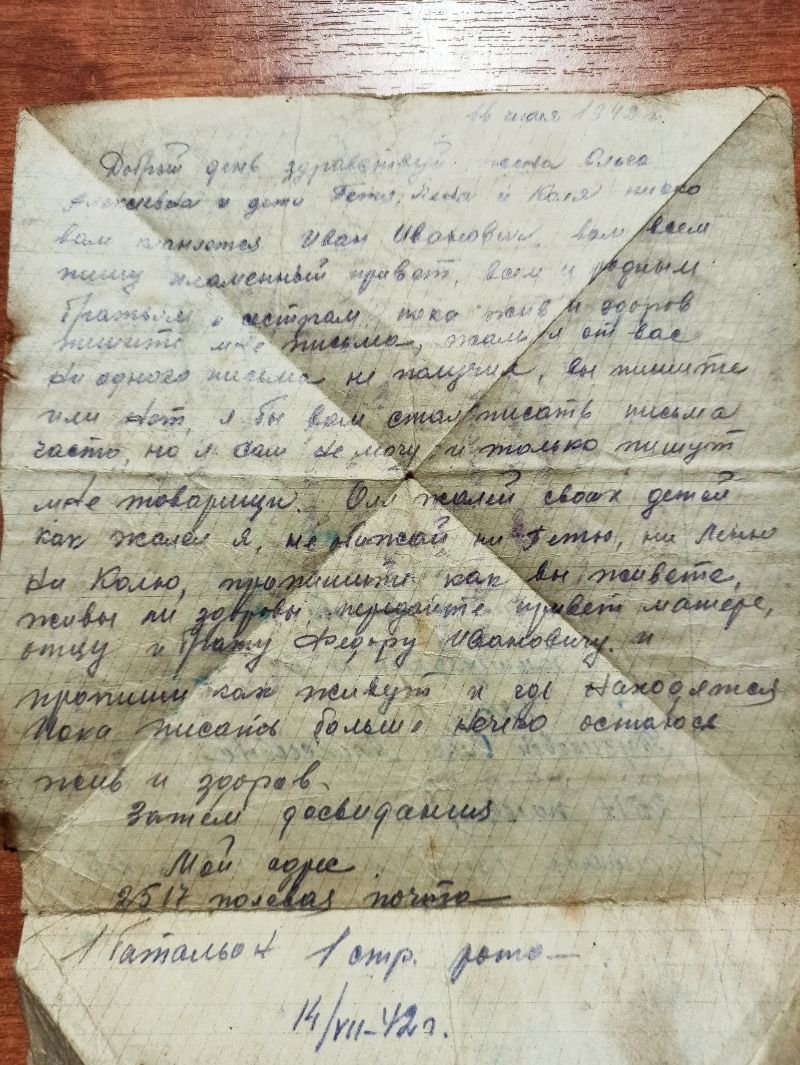 14 июля 1942 г.
Добрый день здравствуй Ольга
Алексевна и дети Гетя, Лена и Коля низко
вам кланются Иван Иванович вам всем
пишу пламенный привет, всем и родным
братьям и сестрам, пока жив и здоров
пишите мне письма, жаль я от вас
ни одного письма не получил, вы пишите
или нет, я бы вам стал писать письма
часто, но я сам не могу и только пишут
мне товарищи. Оля жалей своих детей
как жалел я, не обижай ни Гетю, ни Лену
ни Колю, пропишите как вы живете,
живы ли здоровы, передайте привет матере,
отцу и брату Федору Ивановичу. и
пропиши как живут и где находятся
Пока писать больше нечего остаюсь
жив и здоров.
Затем досвидания
Мой адрес
2517 полевая почта
1 батальон 1 стр. рота
14/VII-42 г.